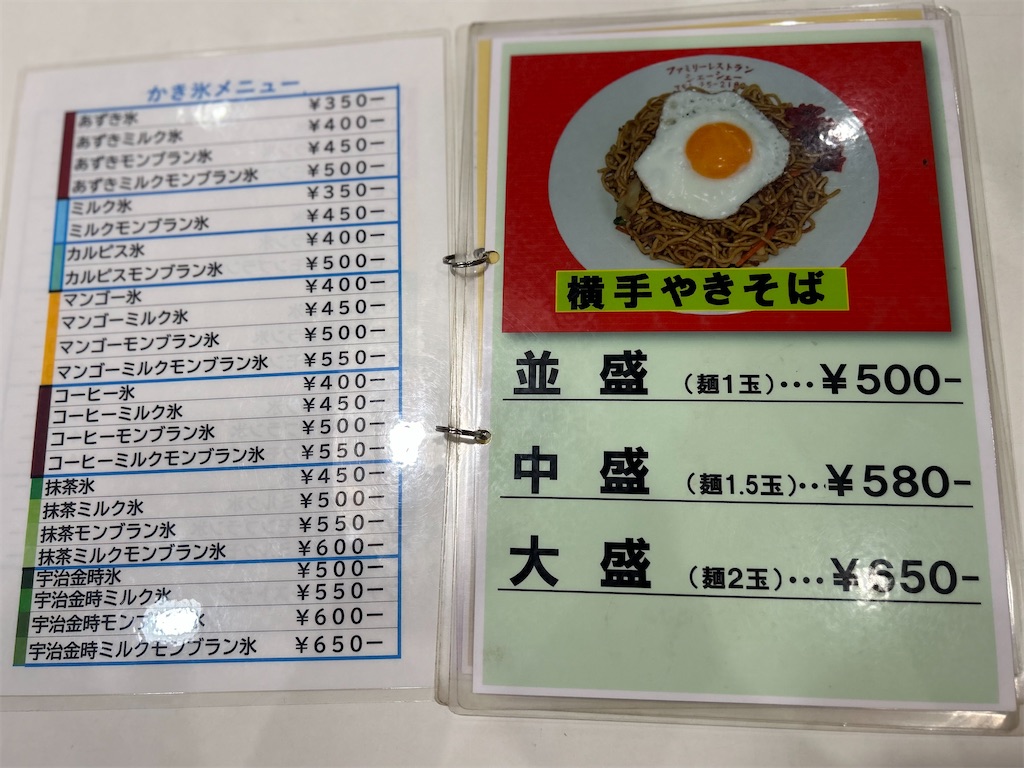 かき氷メニュー
あずき氷 ¥350ー
あずきミルク氷 ¥400ー
あずきモンブラン氷 ¥450ー
あずきミルクモンブラン氷 ¥500ー
ミルク氷 ¥350ー
ミルクモンブラン氷 ¥450ー
カルピス氷 ¥400ー
カルピスモンブラン氷 ¥500ー
マンゴー氷 ¥400ー
マンゴーミルク氷 ¥450ー
マンゴーモンブラン氷 ¥500ー
マンゴーミルクモンブラン氷 ¥550ー
コーヒー氷 ¥400ー
コーヒーミルク氷 ¥450ー
コーヒーモンブラン氷 ¥500ー
コーヒーミルクモンブラン氷 ¥550ー
抹茶氷 ¥450ー
抹茶ミルク氷 ¥500ー
抹茶モンブラン氷 ¥550ー
抹茶ミルクモンブラン氷 ¥600ー
宇治金時氷 ¥500ー
宇治金時ミルク氷 ¥550ー
宇治金時モンブラン氷 ¥600ー
宇治金時ミルクモンブラン氷 ¥650ー
ファミリーレストラン
横手やきそば
並盛 (麺1玉)…¥500-
中盛 (麺1.5玉)…¥580-
大盛 (麺2玉)…¥650-